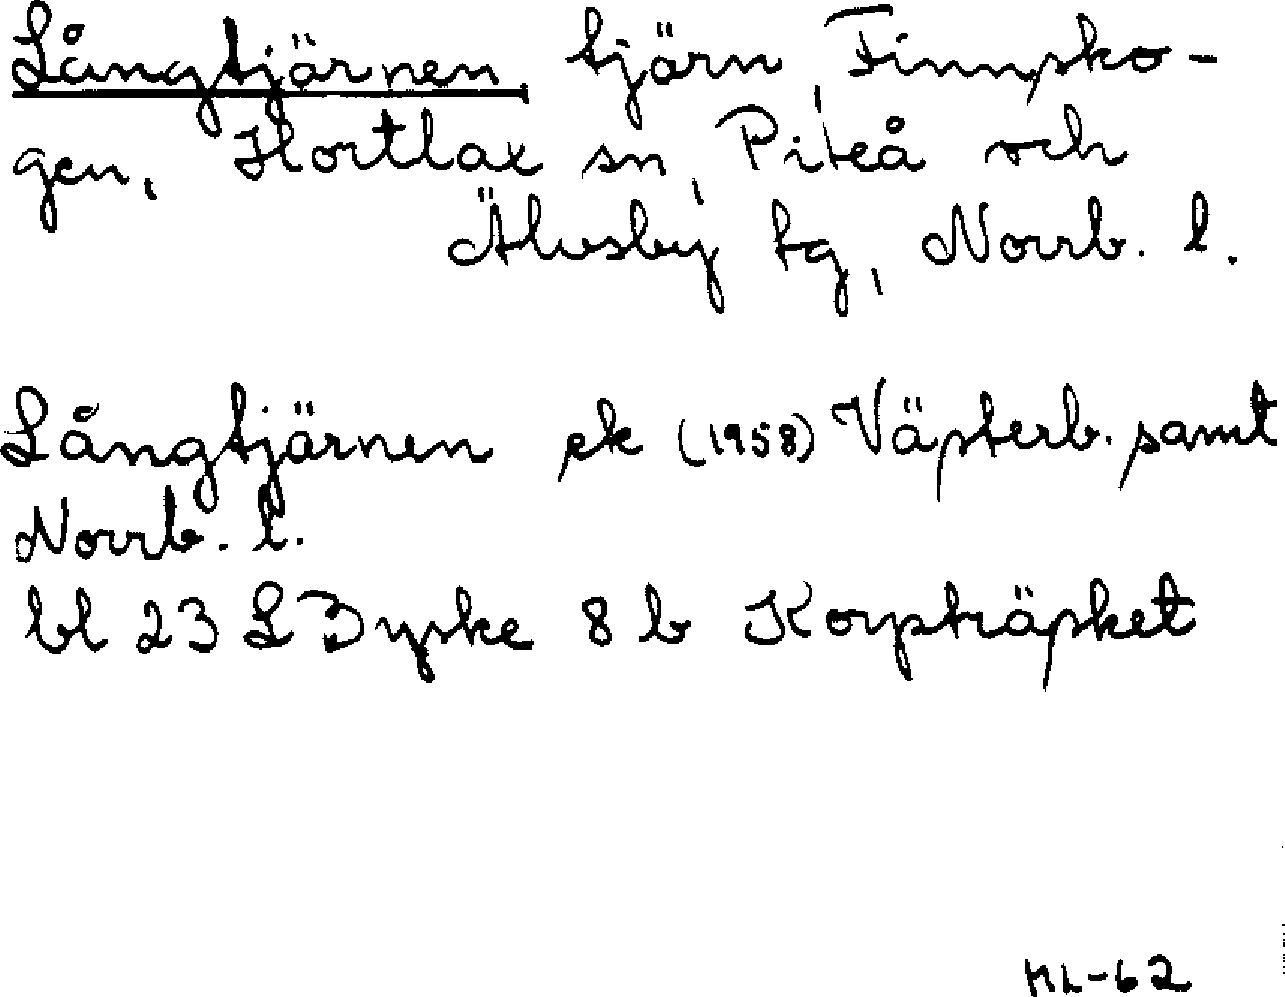 Långtjärnen, tjärn, Finnsko-
gen, Hortlax sn, Piteå och
Älvsby tg, Norrb. l.
Långtjärnen ek (1958) Västerb. samt
Norrb. l.
bl 23 L Byske 8 b Korpträsket
ML-62